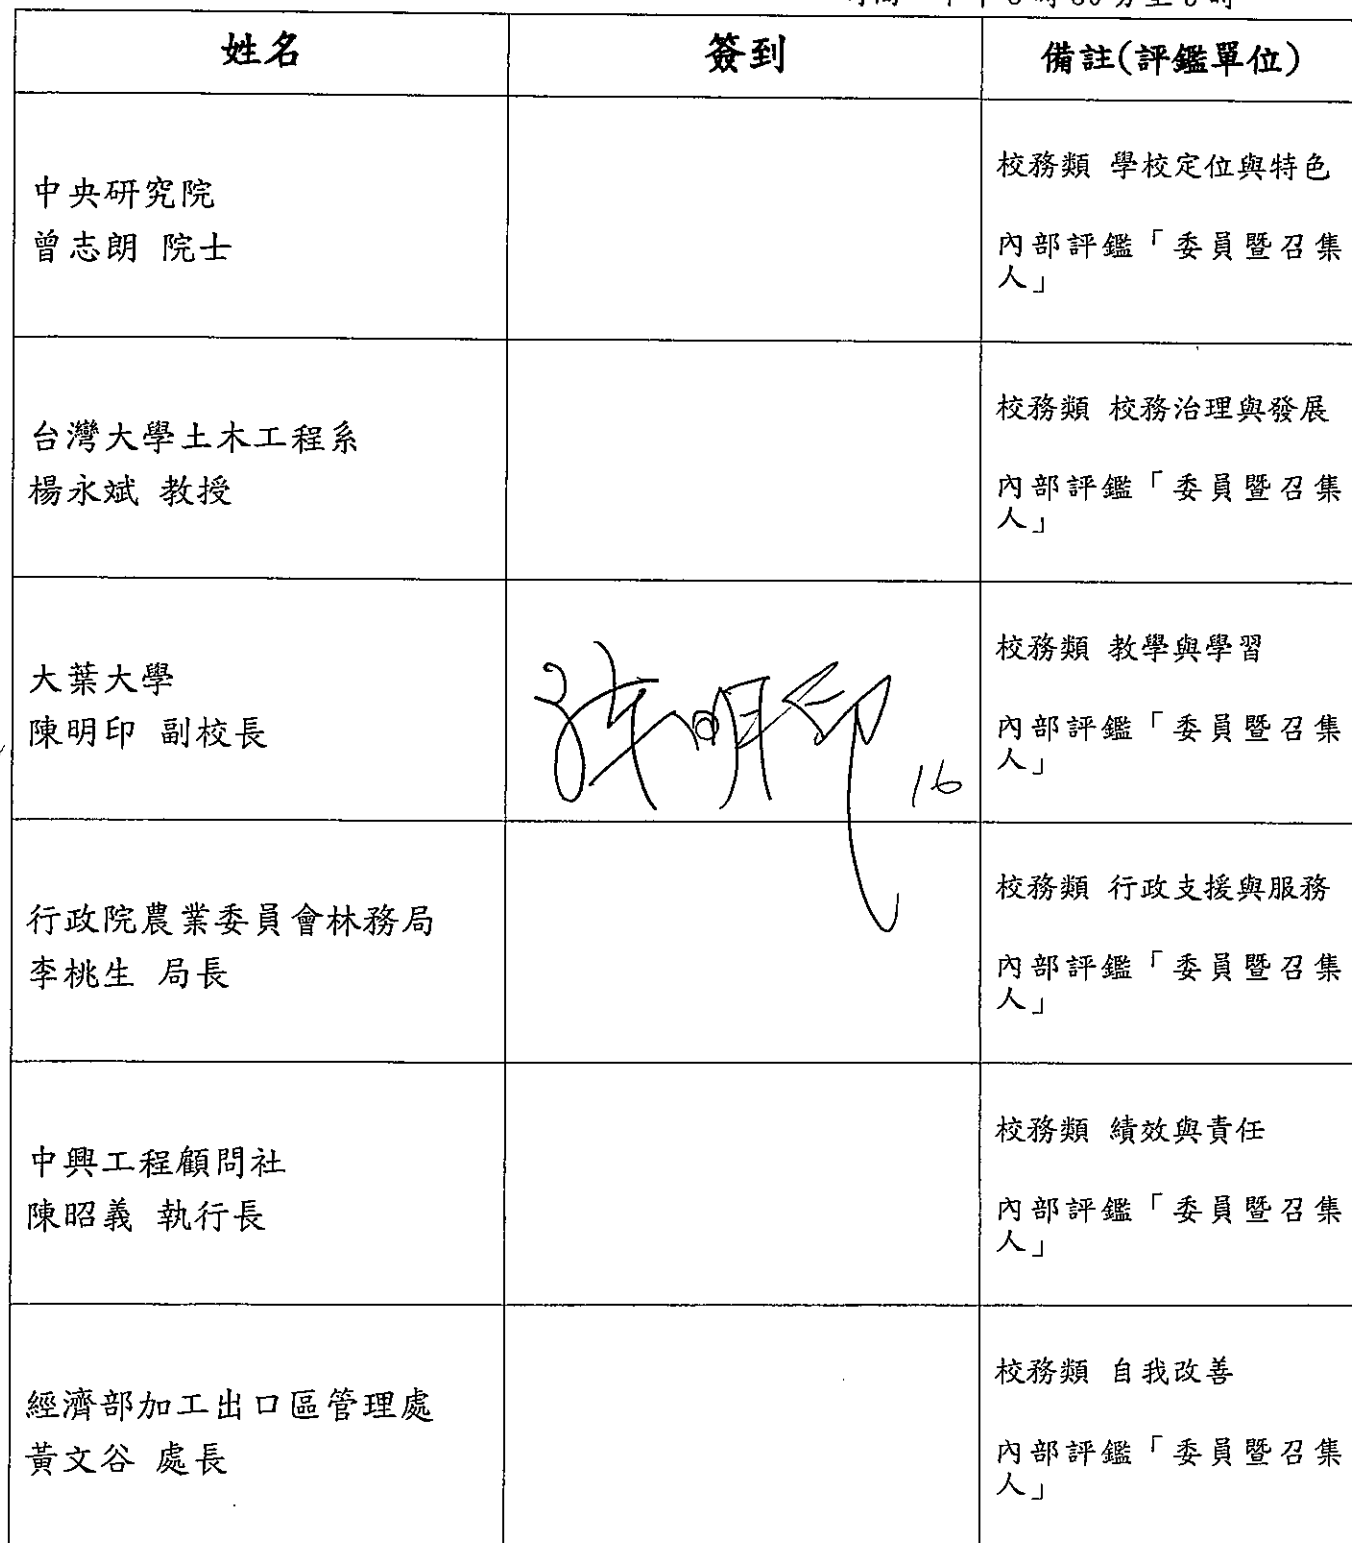 姓名
簽到
備註(評鑑單位)
中央研究院
曾志朗 院士
校務類 學校定位與特色
內部評鑑「委員暨召集
人」
台灣大學土木工程系
楊永斌 教授
校務類 校務治理與發展
內部評鑑「委員暨召集
人」
大葉大學
陳明印 副校長
陳明印
16
校務類 教學與學習
內部評鑑「委員暨召集
人」
行政院農業委員會林務局
李桃生 局長
校務類 行政支援與服務
內部評鑑「委員暨召集
人」
中興工程顧問社
陳昭義 執行長
校務類 績效與責任
內部評鑑「委員暨召集
人」
經濟部加工出口區管理處
黃文谷 處長
校務類 自我改善
內部評鑑「委員暨召集
人」